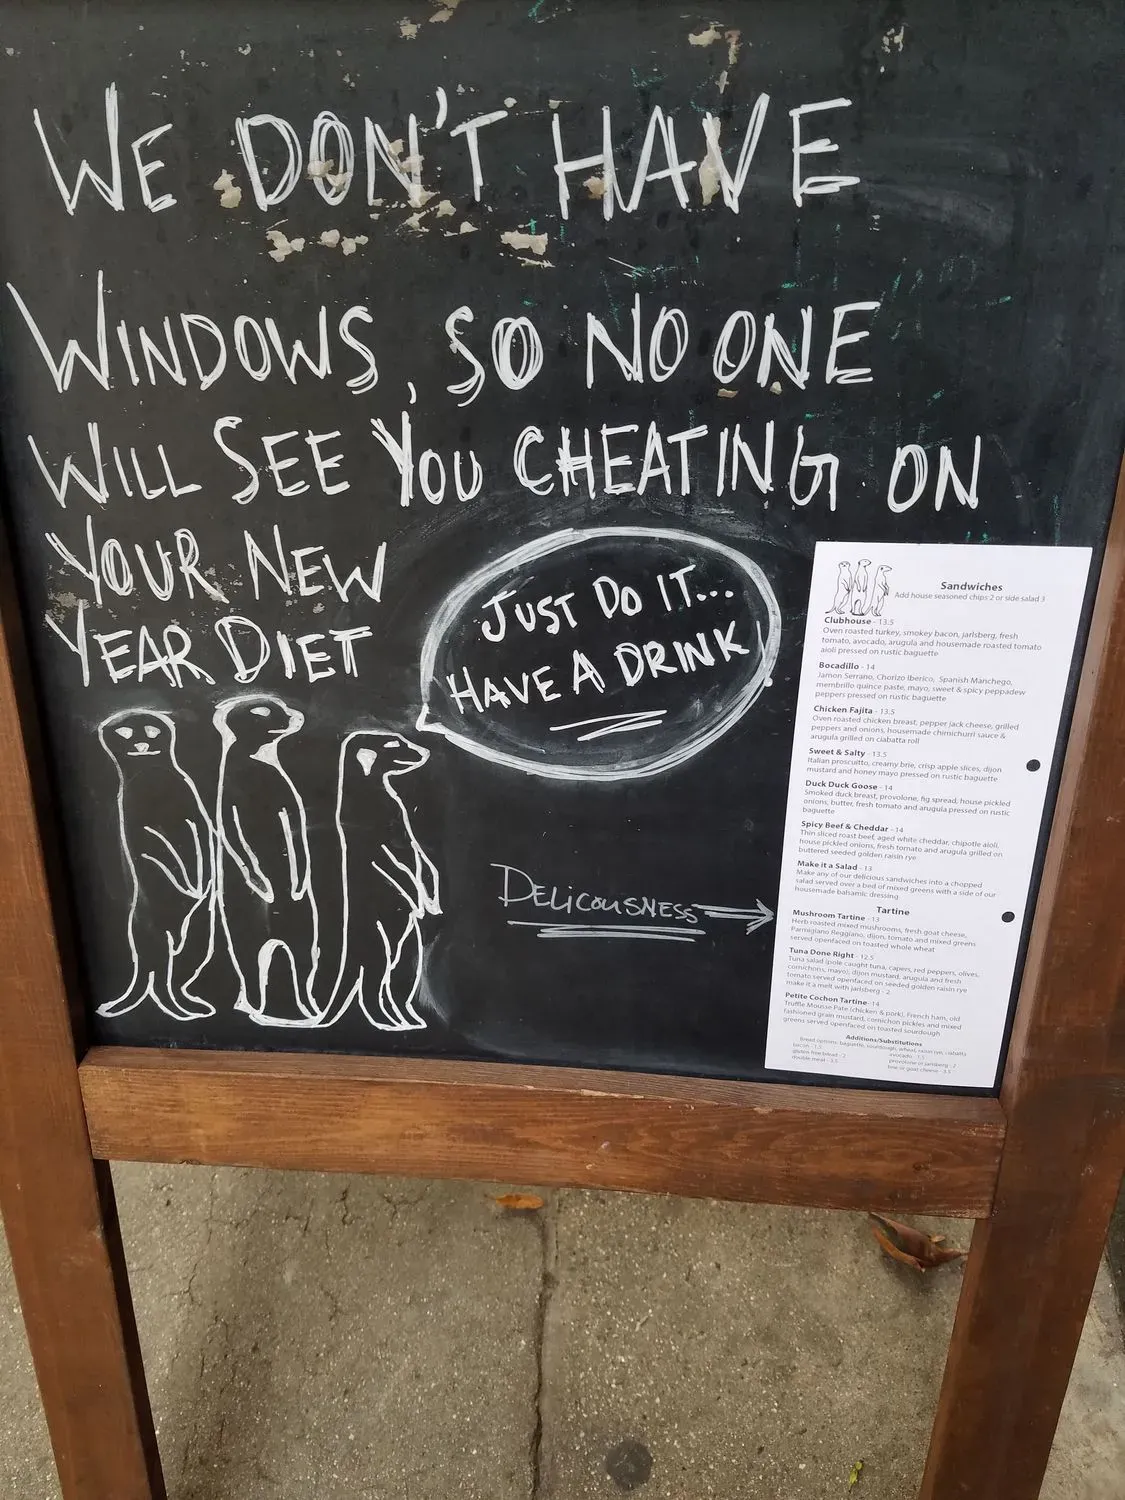 WE DON'T HAVE
WINDOWS, SO NO ONE
WILL SEE YOU CHEATING ON
YOUR NEW
YEAR DIET
JUST DO IT...
HAVE A DRINK!
DELICOUSNESS
Sandwiches
Add house seasoned chips 2 or side salad 3
Clubhouse - 13.5
Oven roasted turkey, smokey bacon, jarlsberg, fresh
tomato, avocado, arugula and housemade roasted tomato
aioli pressed on rustic baguette
Bocadillo - 14
Jamon Serrano, Chorizo Iberico, Spanish Manchego,
membrillo quince paste, mayo, sweet & spicy peppadew
peppers pressed on rustic baguette
Chicken Fajita - 13.5
Oven roasted chicken breast, pepper jack cheese, grilled
peppers and onions, housemade chimichurri sauce &
arugula grilled on ciabatta roll
Sweet & Salty - 13.5
Italian proscuitto, creamy brie, crisp apple slices, dijon
mustard and honey mayo pressed on rustic baguette
Duck Duck Goose - 14
Smoked duck breast, provolone, fig spread, house pickled
onions, butter, fresh tomato and arugula pressed on rustic
baguette
Spicy Beef & Cheddar - 14
Thin sliced roast beef, aged white cheddar, chipotle aioli,
house pickled onions, fresh tomato and arugula grilled on
buttered seeded golden raisin rye
Make it a Salad - 13
Make any of our delicious sandwiches into a chopped
salad served over a bed of mixed greens with a side of our
housemade balsamic dressing
Tartine
Mushroom Tartine - 13
Herb roasted mixed mushrooms, fresh goat cheese,
Parmigiano Reggiano, dijon, tomato and mixed greens
served openfaced on toasted whole wheat
Tuna Done Right - 12.5
Tuna salad (pole caught tuna, capers, red peppers, olives,
cornichons, mayo), dijon mustard, arugula and fresh
tomato served openfaced on seeded golden raisin rye
make it a melt with jarlsberg - 2
Petite Cochon Tartine - 14
Truffle Mousse Pate (chicken & pork), French ham, old
fashioned grain mustard, cornichon pickles and mixed
greens served openfaced on toasted sourdough
Additions/Substitutions
Bread options: baguette, sourdough, wheat, raisin rye, ciabatta
bacon - 1.5
gluten free bread - 2
double meat - 3.5
avocado - 1.5
provolone or jarlsberg - 2
brie or goat cheese - 3.5